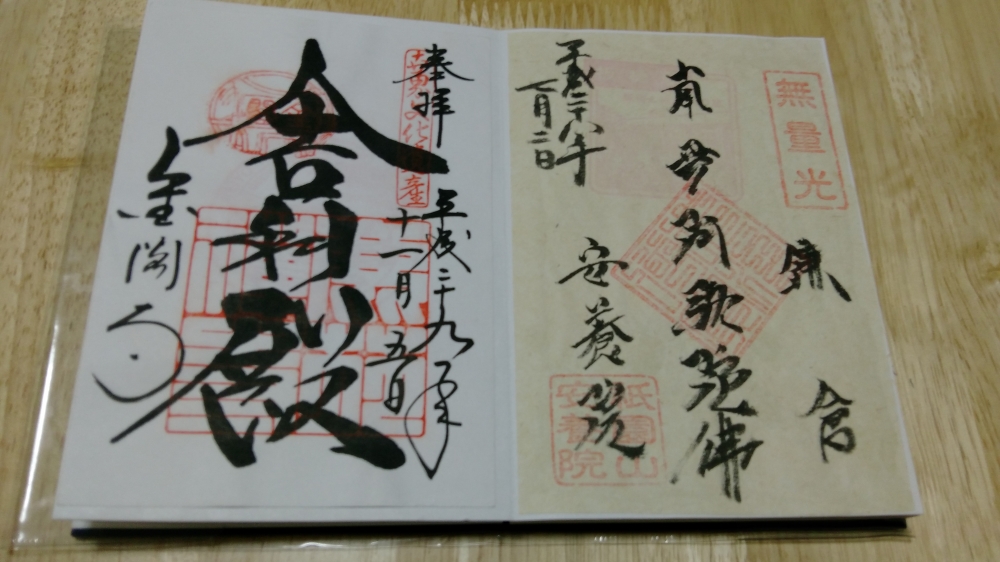 無量光
鎌倉
南無阿弥陀佛
平成二十八年
一月二日
安養院
祇園山
安養院
奉拝
平成二十九年
十一月五日
世界文化遺産
舎利殿
金閣寺